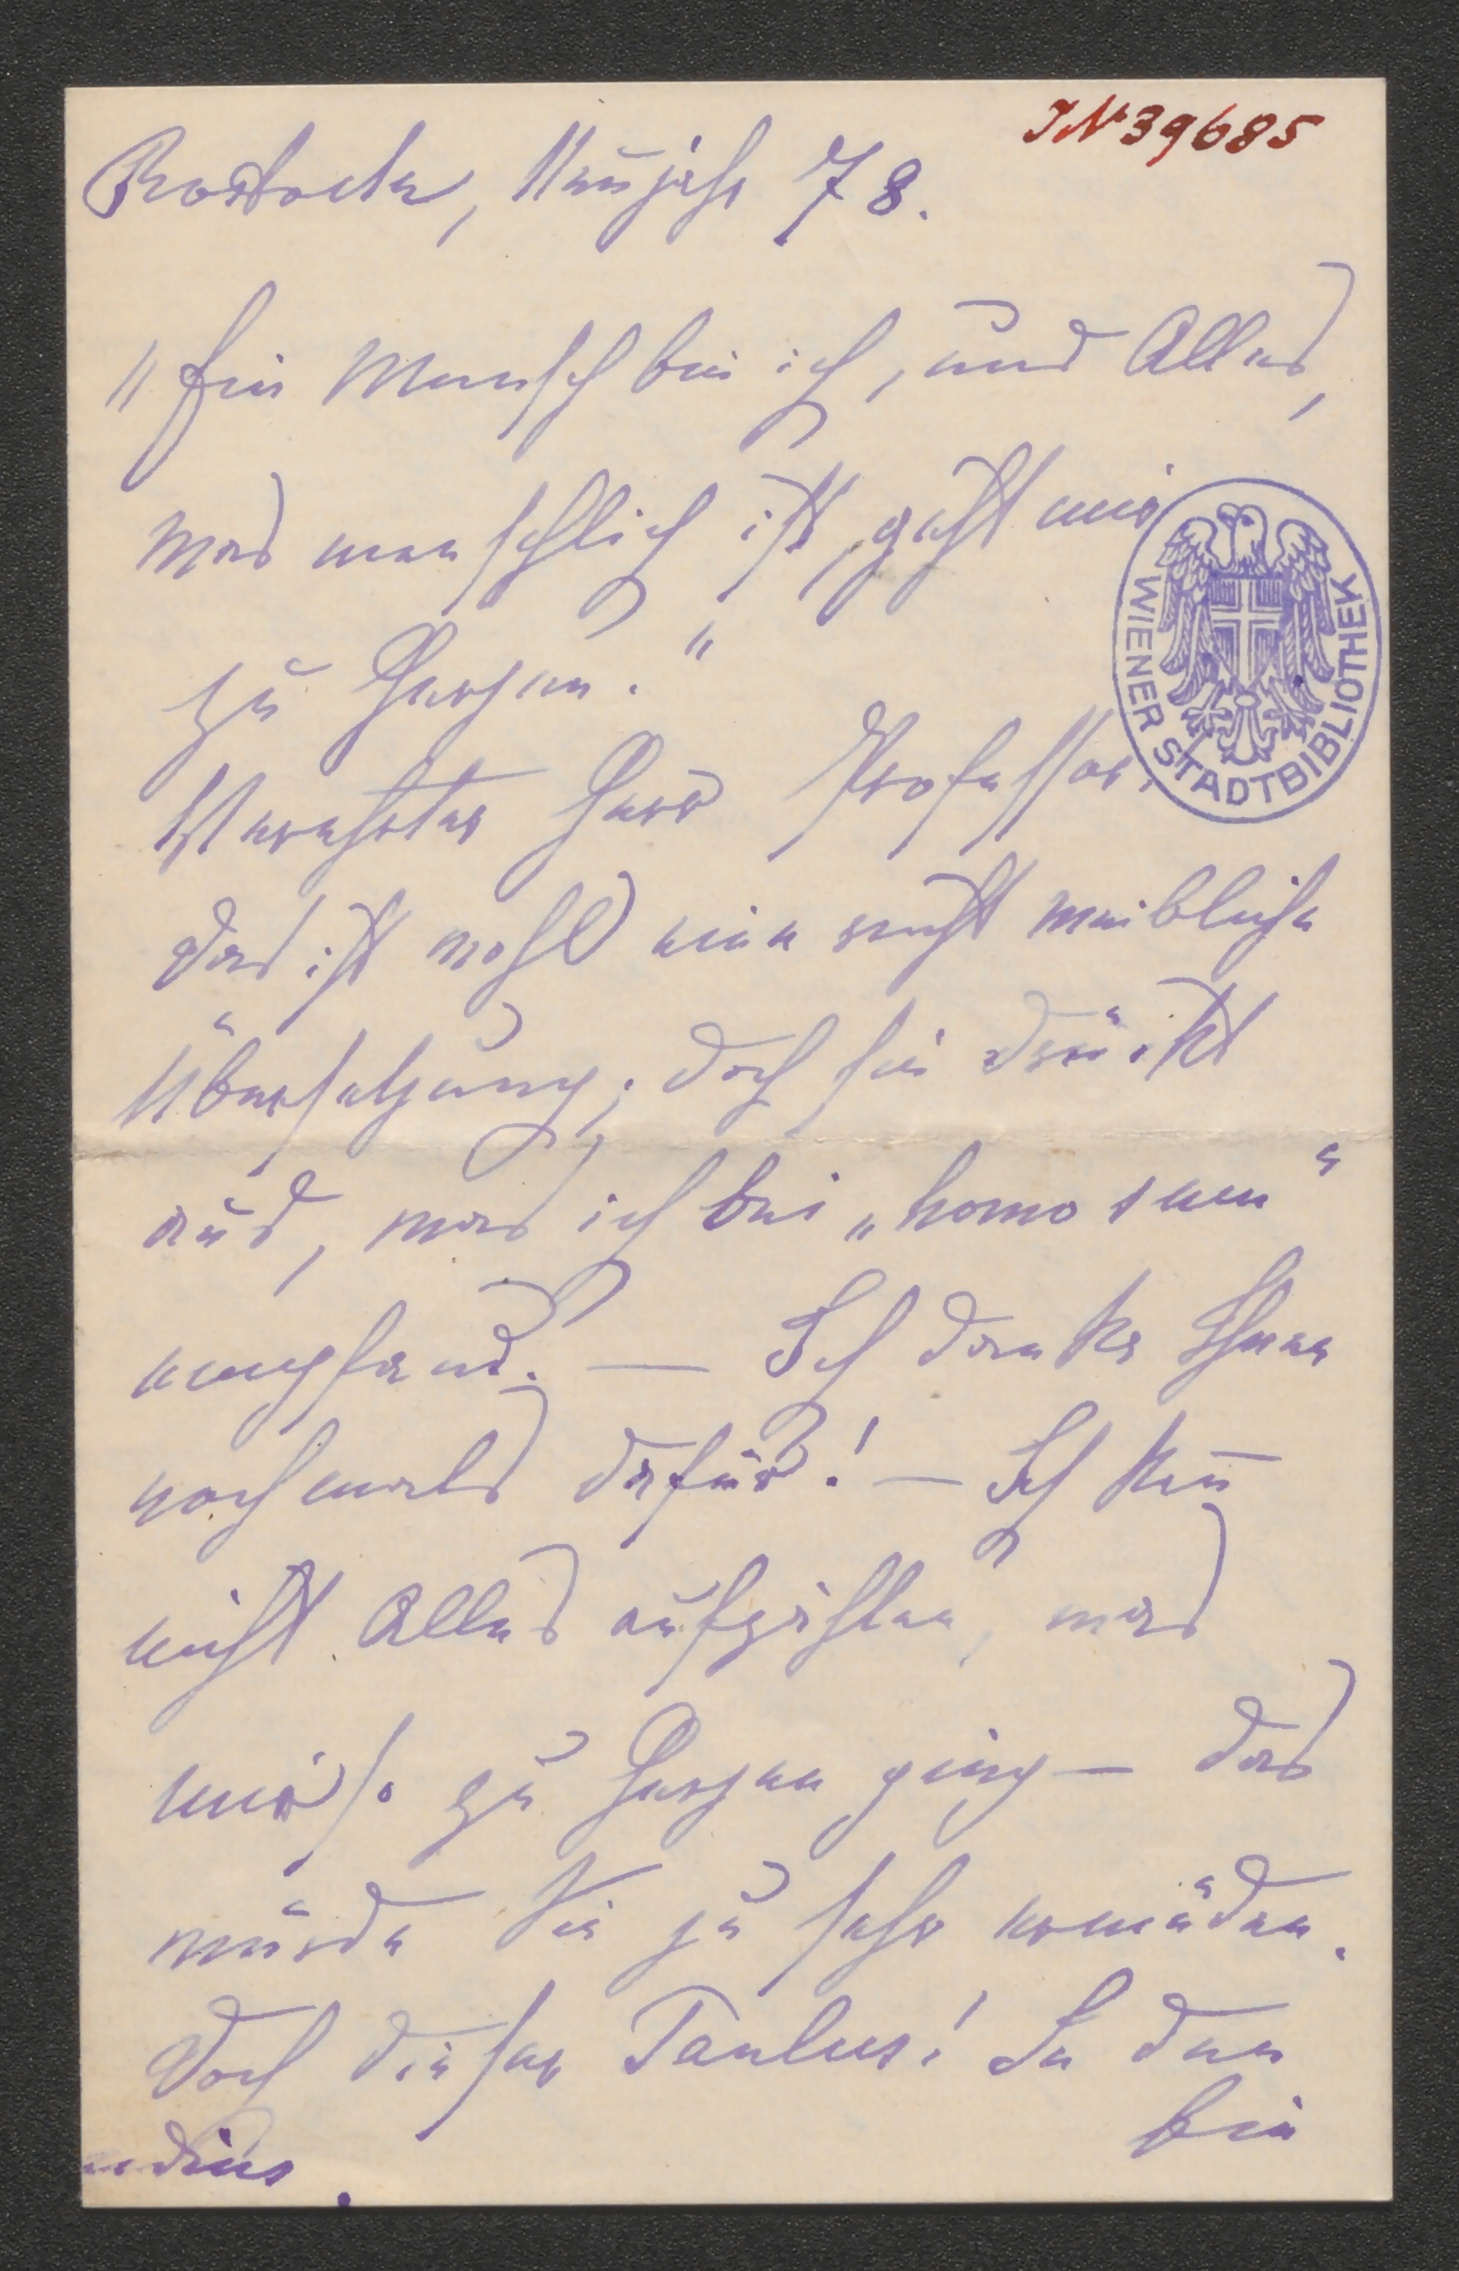 JN 39685
Rostock, Neujahr 78.
"Ein Mensch bin ich, und Alles,
was menschlich ist, geht mir
zu Herzen."
Verehrter Herr Professor,
das ist wohl eine recht weibliche
Übersetzung; doch sie drückt
aus, was ich bei „homo sum"
empfand. — Ich danke Ihnen
nochmals dafür! — Ich kan̄
nicht Alles aufzählen, was
mir so zu Herzen ging — das
würde Sie zu sehr ermüden.
Doch dieser Paulus! In den
bin
WIENER STADTBIBLIOTHEK